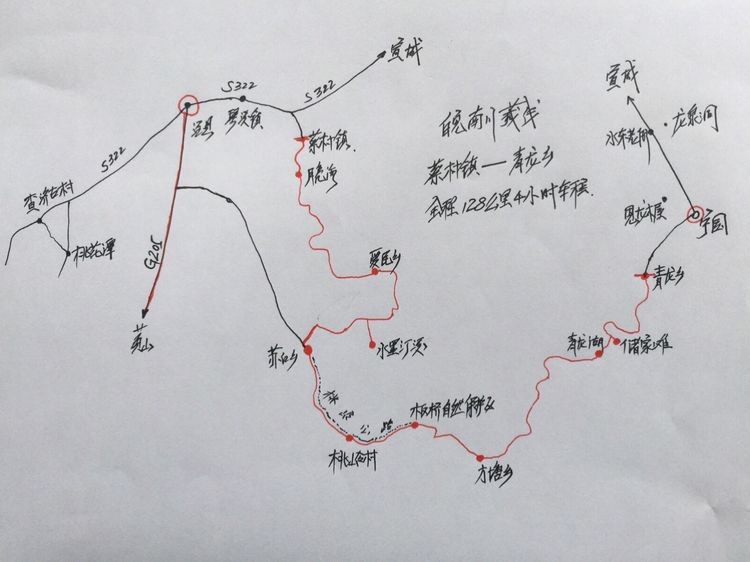 宣城
S322
S322
泾县
琴溪镇
宣城
龙泉洞
水东老街
皖南川藏线
蔡村镇——青龙乡
全程128公里4小时车程
蔡村镇
月亮湾
S322
查济古村
桃花潭
G205
黄山
恩龙木屋
宁国
爱民乡
青龙乡
苏红乡
水墨汀溪
青龙湖
储家滩
公路
板桥自然保护区
桃岭村
方塘乡